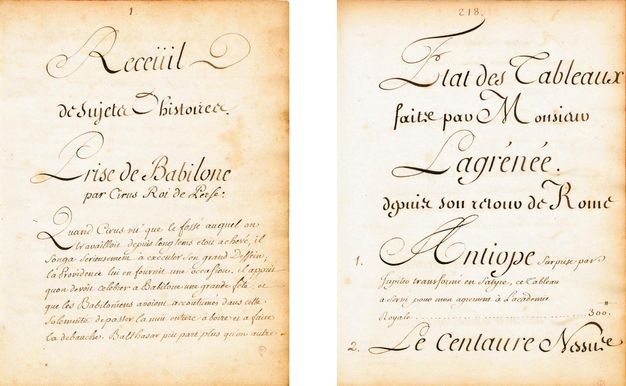 1
Receüil
de sujets D'histoires.
Prise de Babilone
par Cirus Roi de Perse.
Quand Cirus vit que le fossé auquel on
travailloit depuis longtems etoit achevé, il
songa serieusement a exécuter son grand Dessein;
la Providence lui en fournit une occasion. il apprit
qu'on devoit célébrer a Babilone une grande fête, et
que les Babiloniens avoient accoutumés dans cette
solemnité de passer la nuit entiere a boire et a faire
la débauche. Balthasar prit part plus qu'un autre
218.
Etat des Tableaux
faits par Monsieur
Lagrénée.
depuis son retour de Rome
1. Antiope surprise par
Jupiter transformé en Satyre, ce Tableau
a servi pour mon agrément a L'academie
Royale 300.
2. Le Centaure Nessus